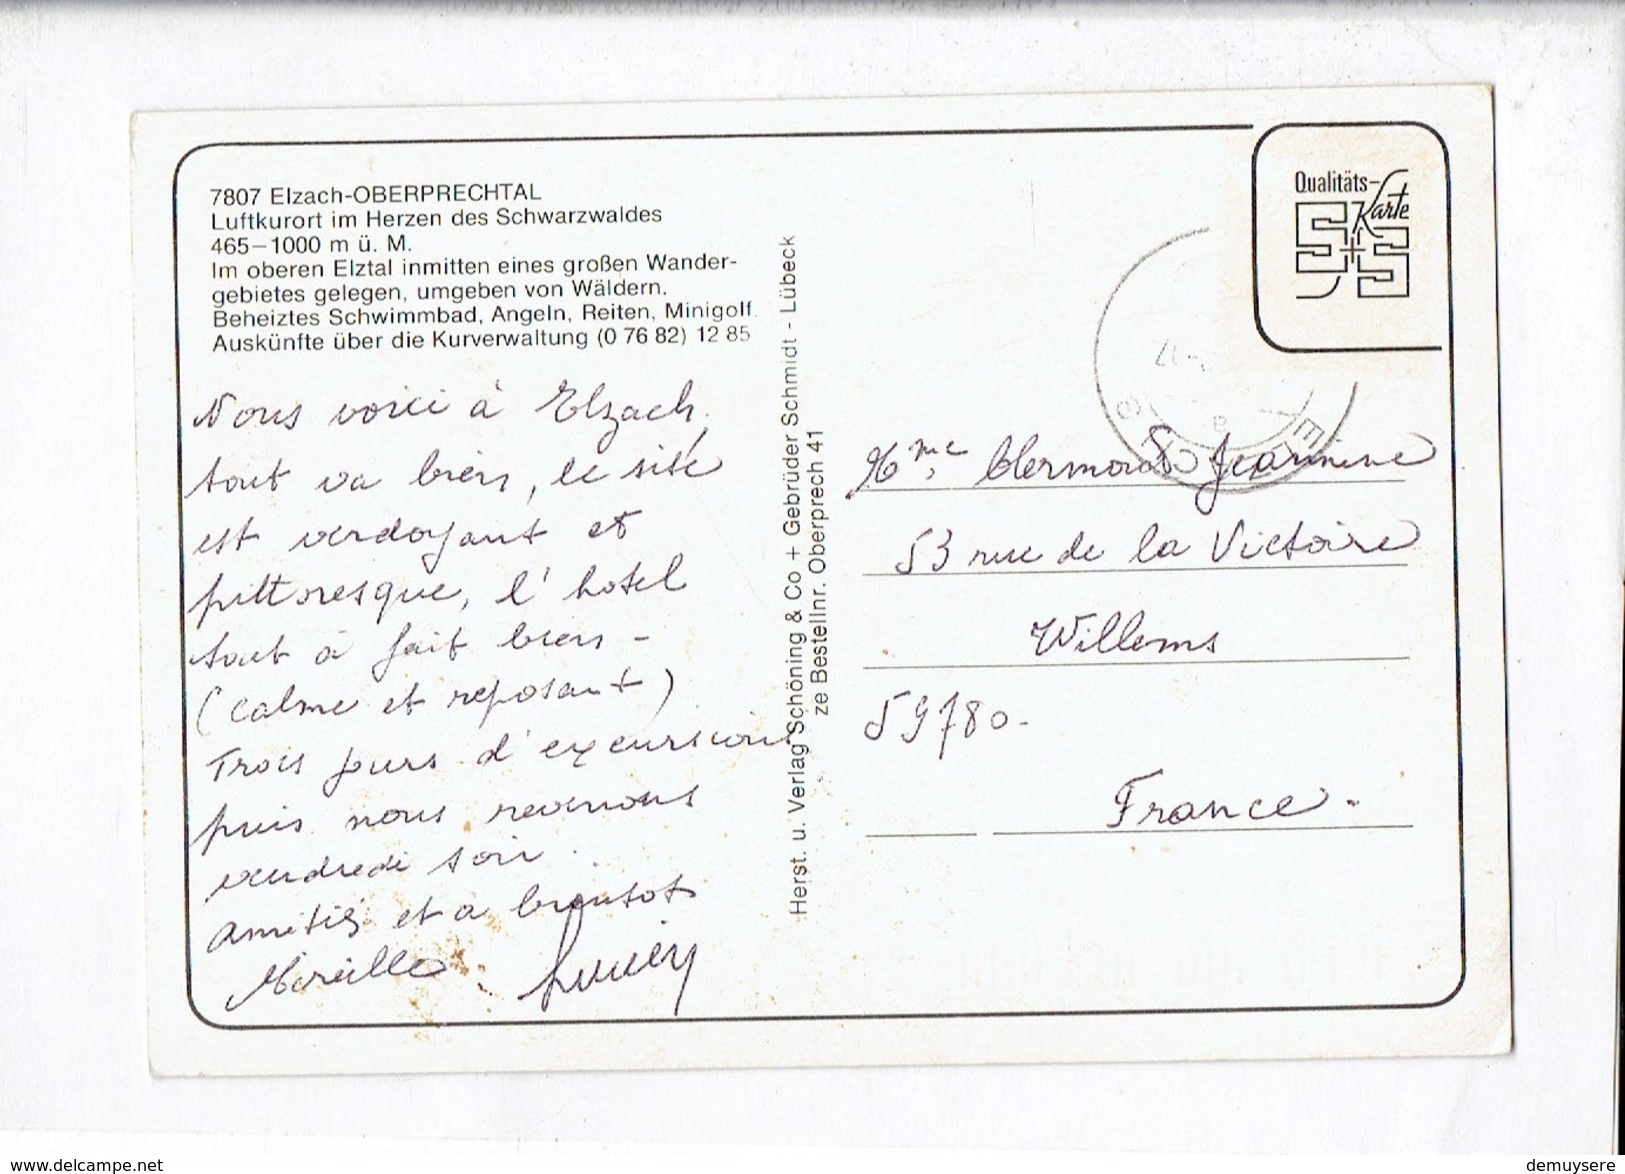 7807 Elzach-OBERPRECHTAL
Luftkurort im Herzen des Schwarzwaldes
465–1000 m ü. M.
Im oberen Elztal inmitten eines großen Wander-
gebietes gelegen, umgeben von Wäldern.
Beheiztes Schwimmbad, Angeln, Reiten, Minigolf
Auskünfte über die Kurverwaltung (0 76 82) 12 85
Nous voici à Elzach,
tout va bien, le site
est verdoyant et
pittoresque, l'hotel
tout à fait bien -
(calme et reposant)
Trois jours d'excursions
puis nous revenons
vendredi soir.
amitiés et à bientot
Mireille Lucien
Herst. u. Verlag Schöning & Co + Gebrüder Schmidt - Lübeck
ze Bestellnr. Oberprech 41
Qualitäts-
Karte
S+S
Mme Clermont Jeannine
53 rue de la Victoire
Willems
59780-
France.
delcampe.net
demuysere